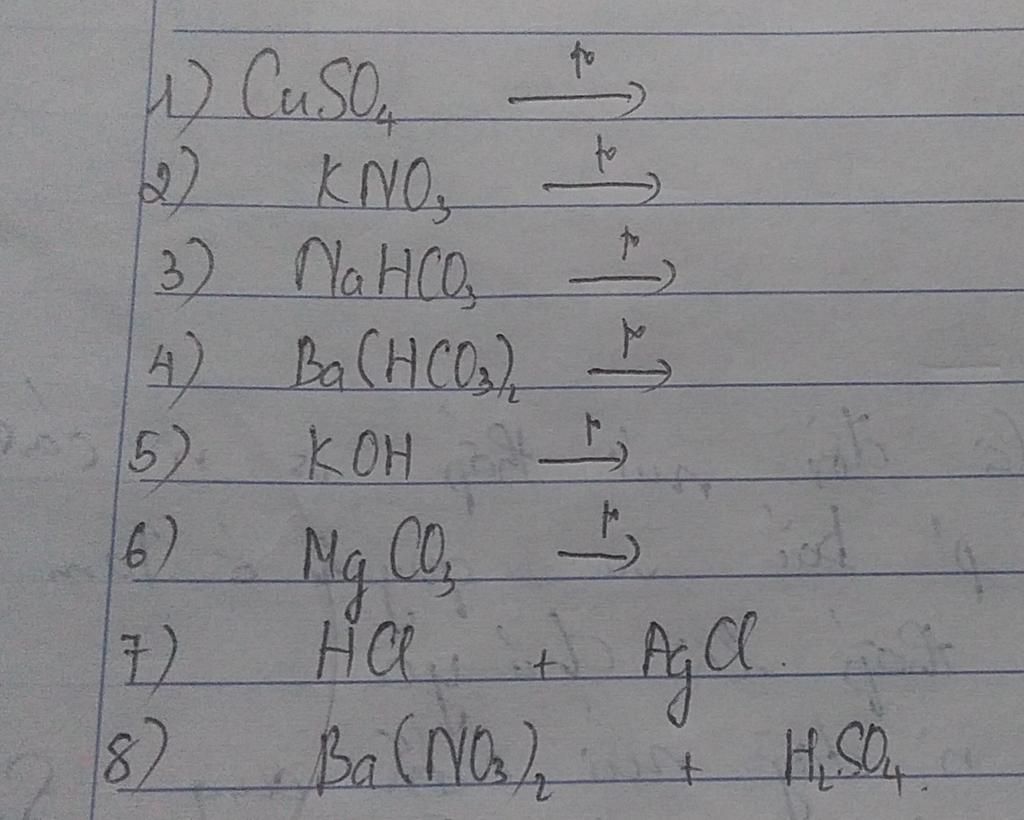 1) CuSO₄ —t⁰→
2) KNO₃ —t⁰→
3) NaHCO₃ —t⁰→
4) Ba(HCO₃)₂ —t⁰→
5) KOH —t⁰→
6) MgCO₃ —t⁰→
7) HCl + AgCl.
8) Ba(NO₃)₂ + H₂SO₄.